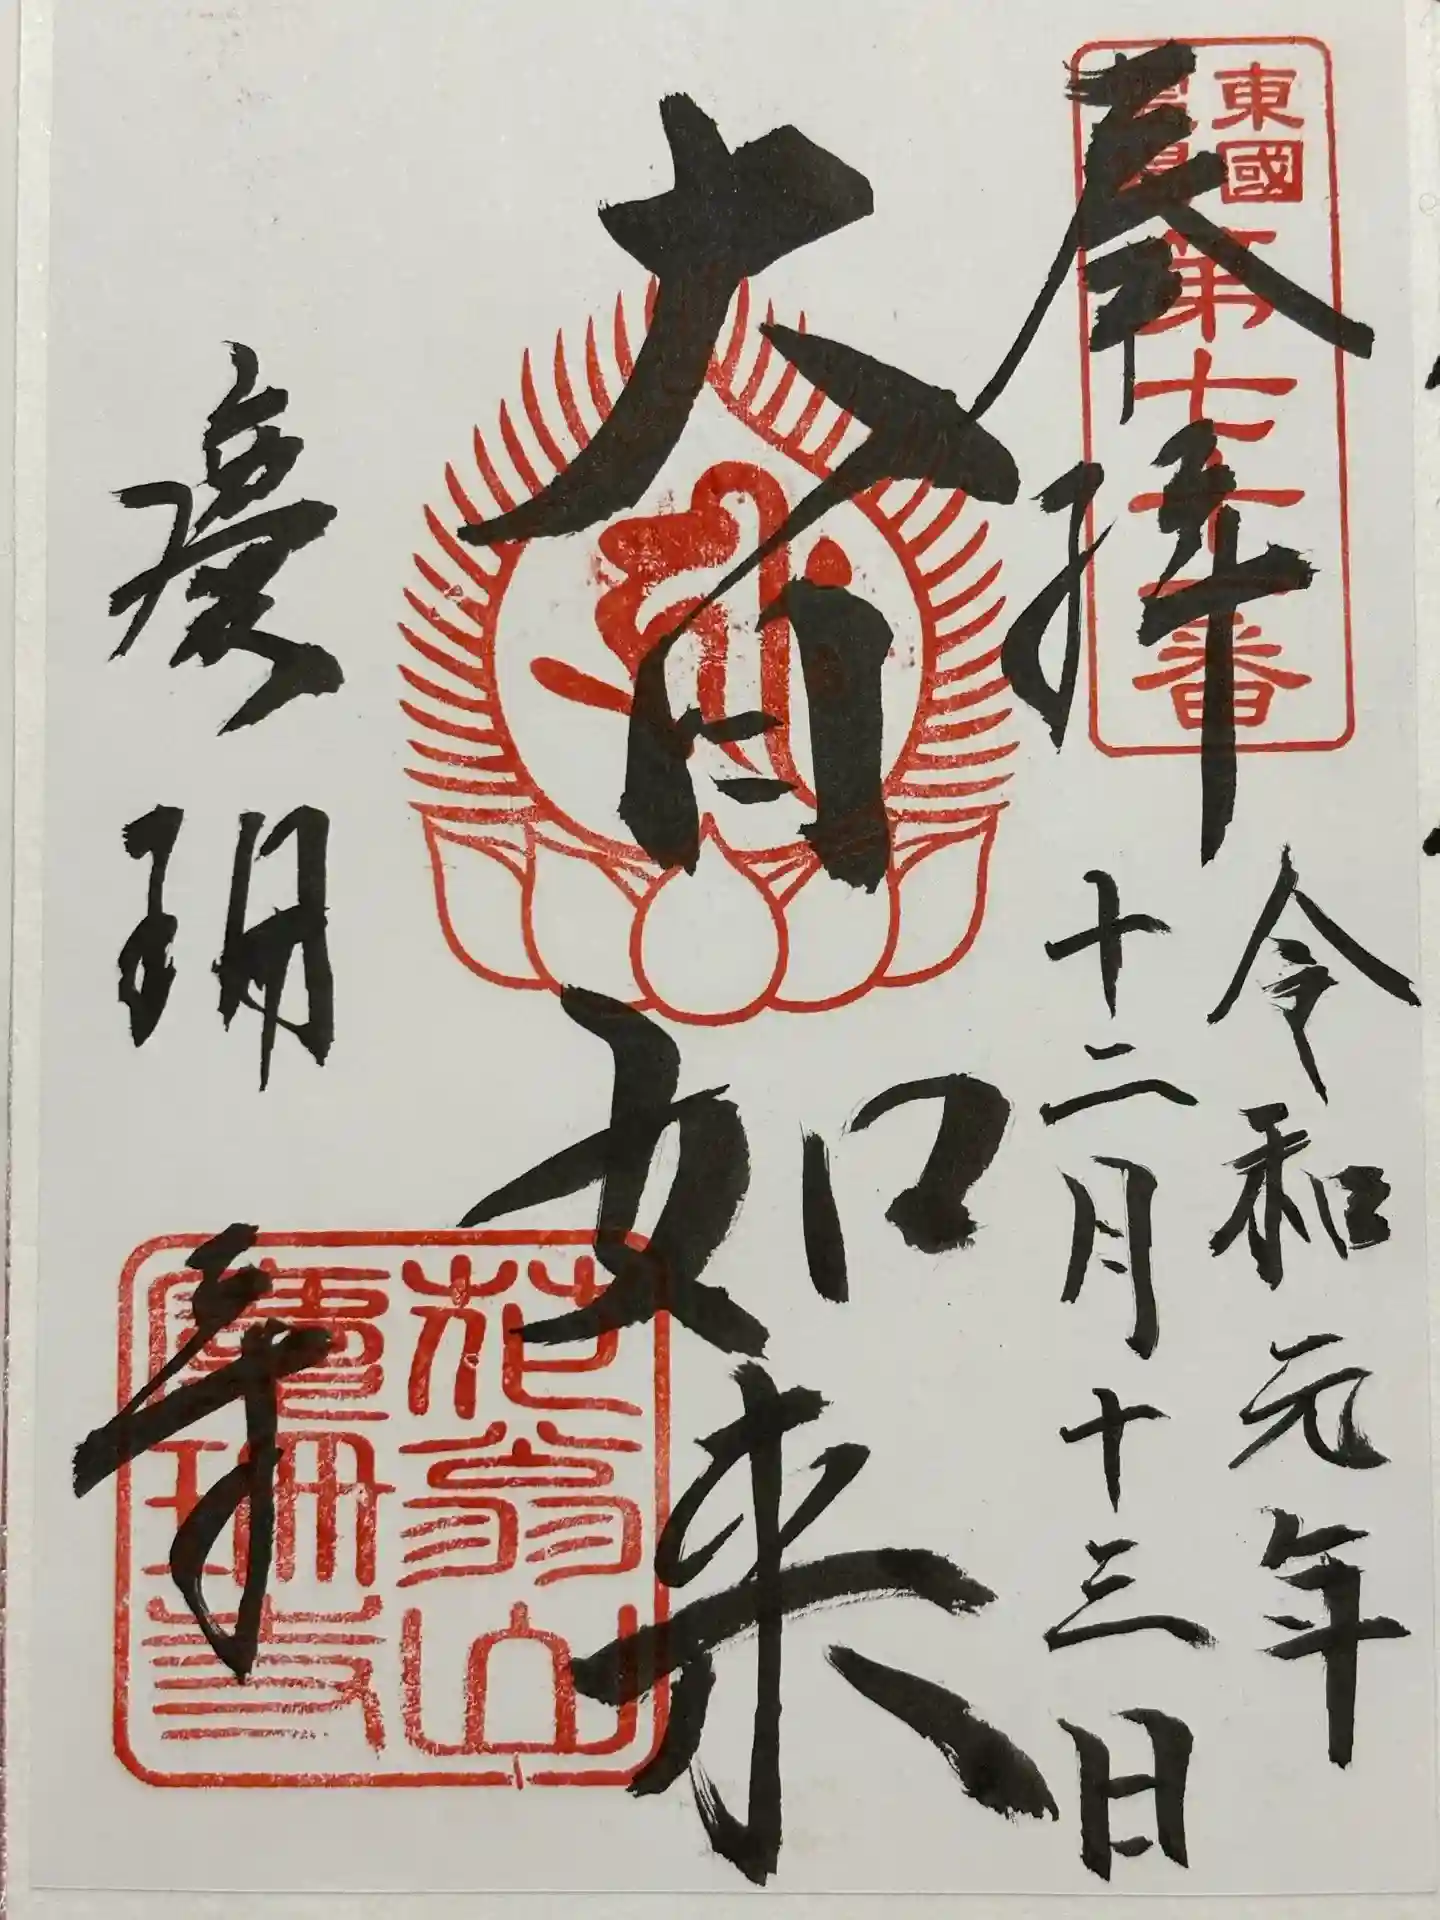 東國
霊場
第七十番
奉拝
令和元年
十二月十三日
大日如来
慶珊寺
花翁山
慶珊寺